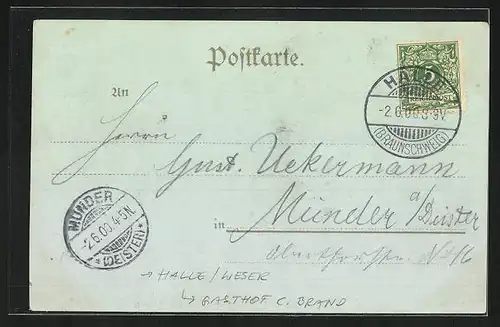 Postkarte.
HALLE
-2.6.00.8-9V.
(BRAUNSCHWEIG)
An
Herrn
Gust. Uekermann
MÜNDER
-2.6.00.4-5N.
*(DEISTER)*
in Münder a/Deister
→ HALLE / WESER
↳ GASTHOF C. BRAND